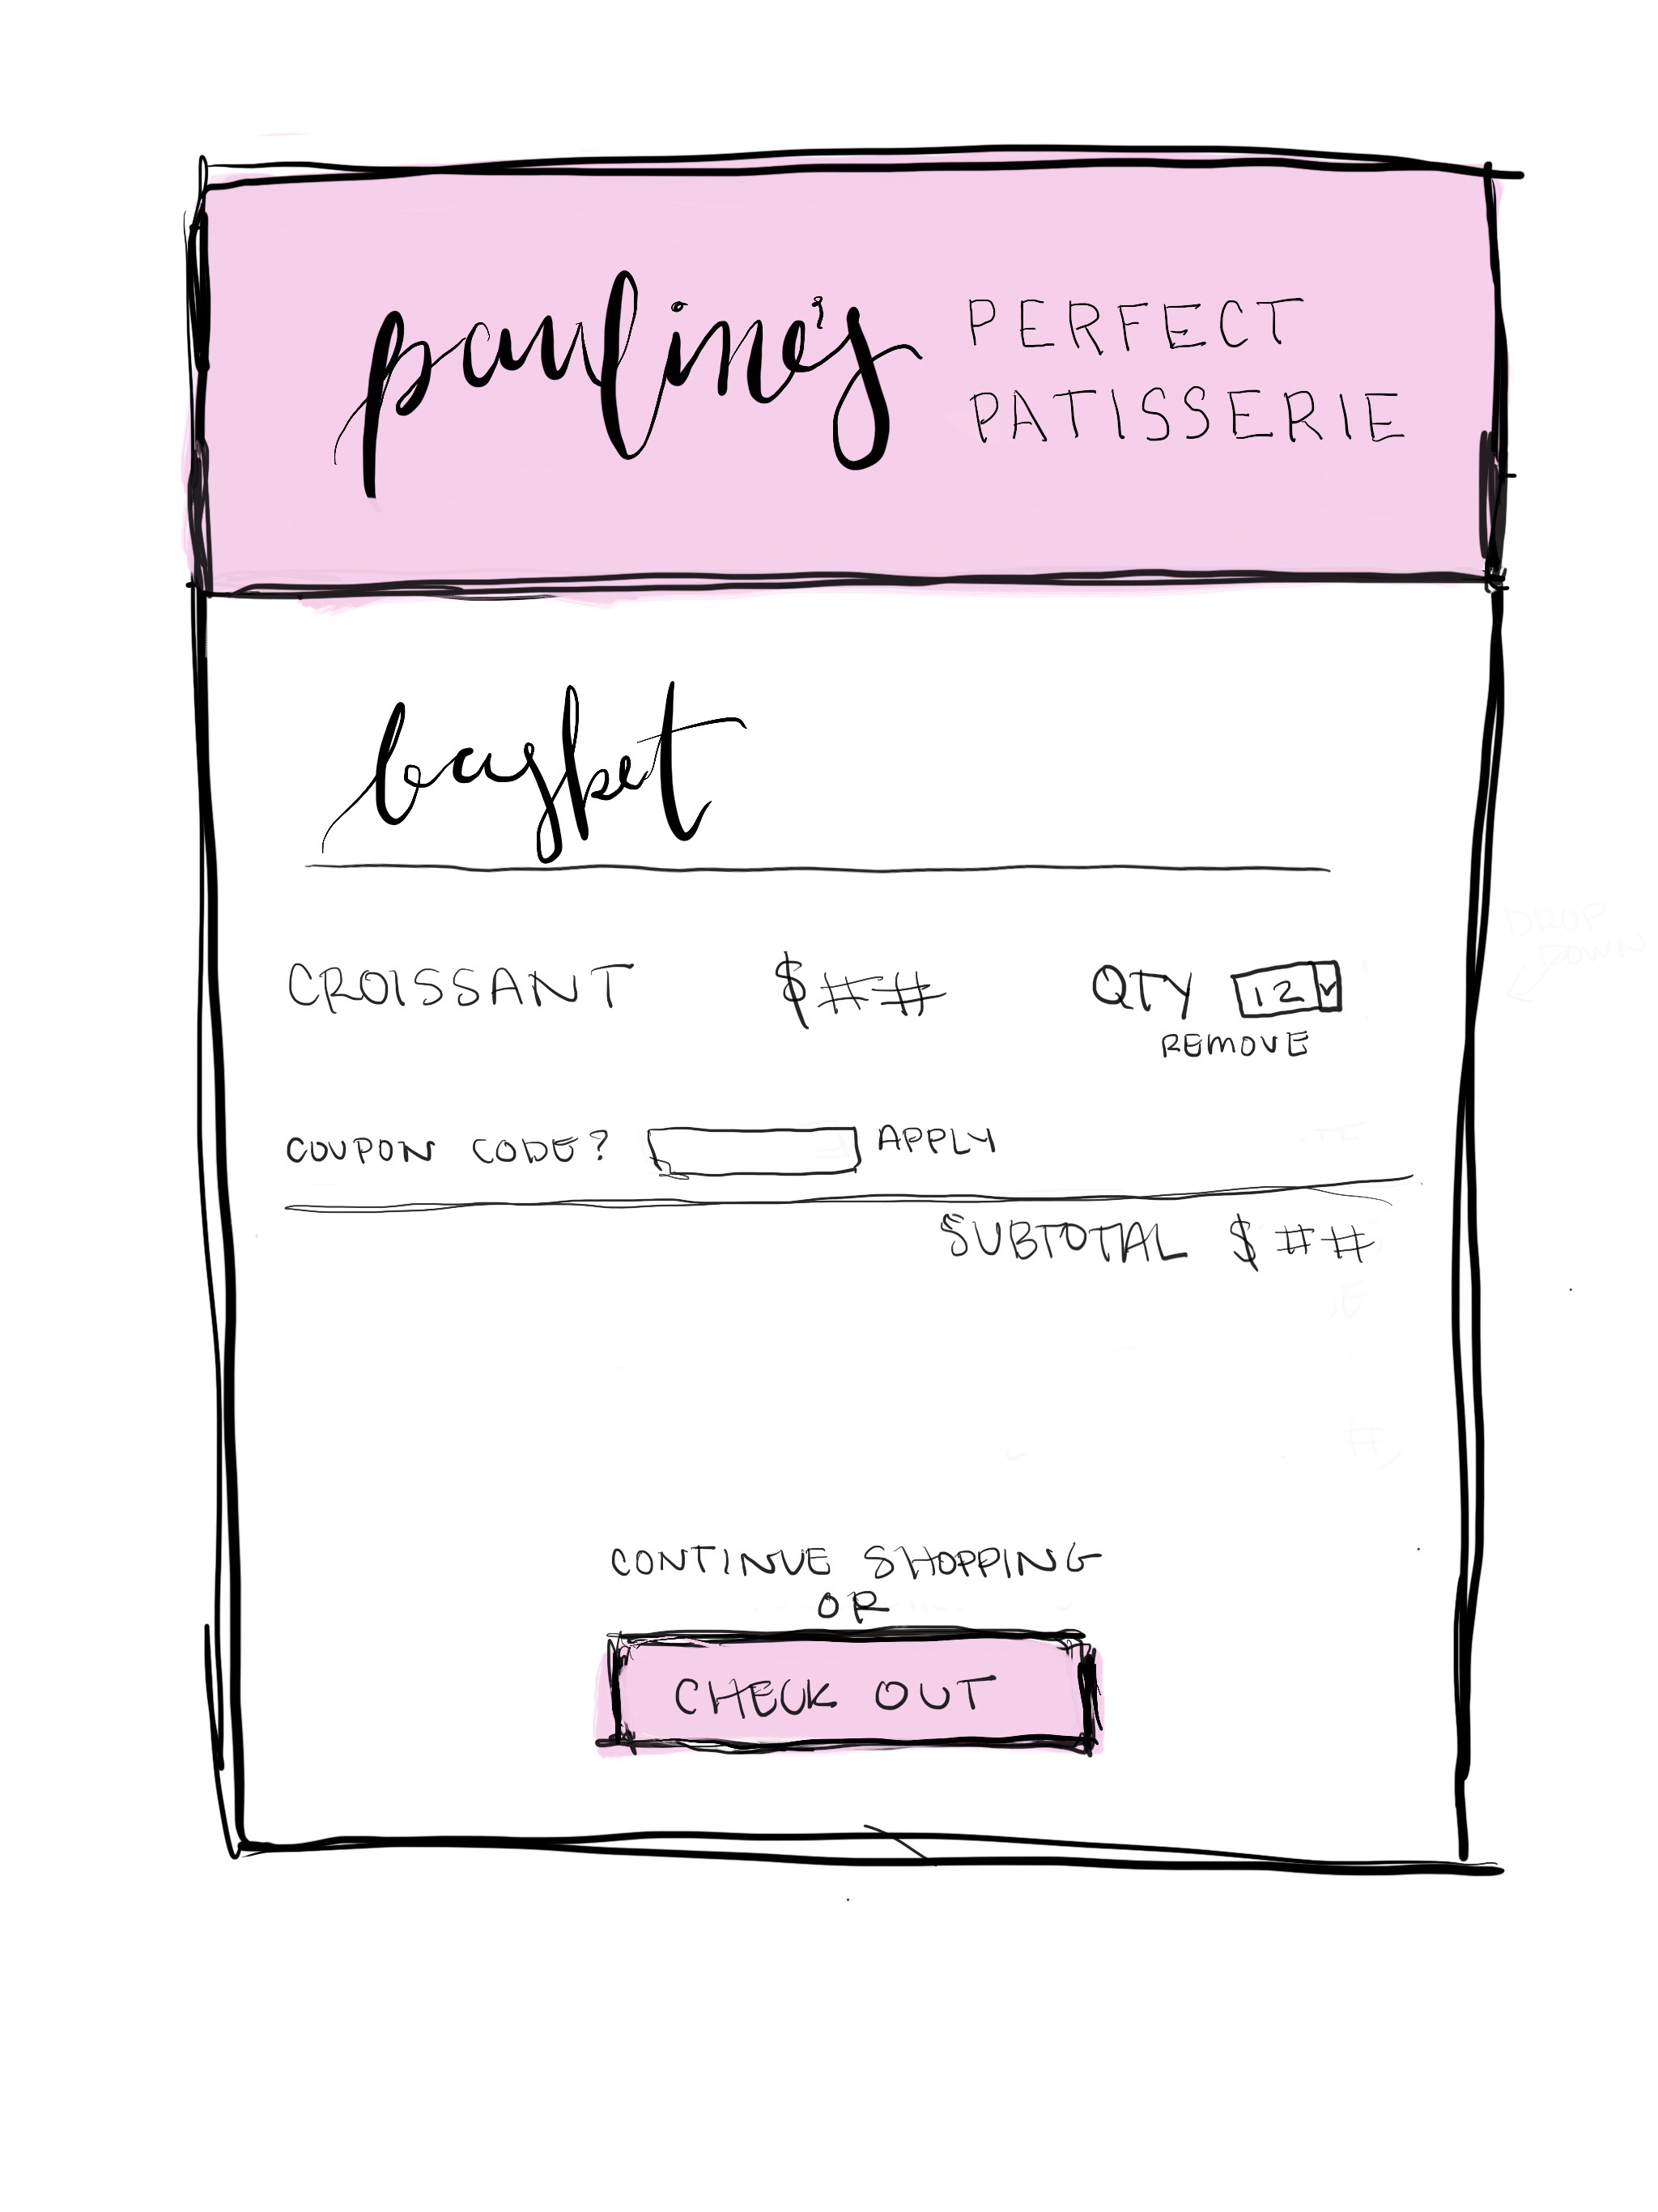 pauline's PERFECT
PATISSERIE
basket
CROISSANT $## QTY 12
REMOVE
COUPON CODE? APPLY
SUBTOTAL $##
CONTINUE SHOPPING
OR
CHECK OUT
DROP
DOWN